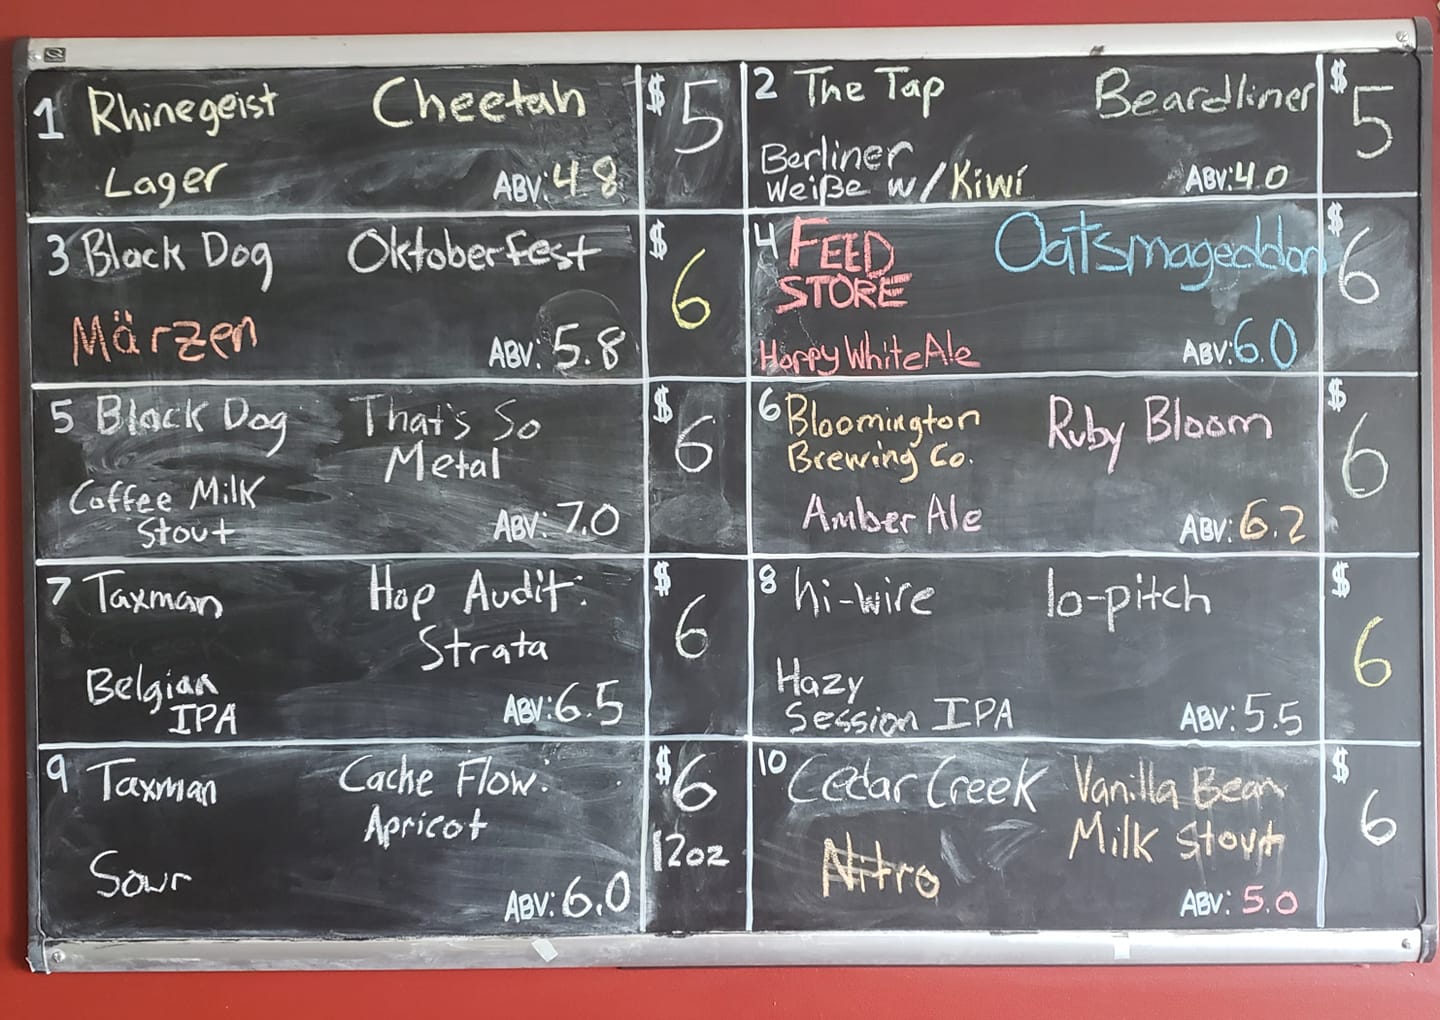 1 Rhinegeist Cheetah $5
Lager ABV: 4.8
2 The Tap Beardliner $5
Berliner
Weiße w/ Kiwi ABV: 4.0
3 Black Dog Oktoberfest $6
Märzen ABV: 5.8
4 FEED Oatsmageddon $6
STORE
Hoppy White Ale ABV: 6.0
5 Black Dog That's So $6
Metal
Coffee Milk
Stout ABV: 7.0
6 Bloomington Ruby Bloom $6
Brewing Co.
Amber Ale ABV: 6.2
7 Taxman Hop Audit: $6
Strata
Belgian
IPA ABV: 6.5
8 hi-wire lo-pitch $6
Hazy
Session IPA ABV: 5.5
9 Taxman Cache Flow: $6
Apricot 12oz
Sour ABV: 6.0
10 Cedar Creek Vanilla Bean $6
Nitro Milk Stout
ABV: 5.0